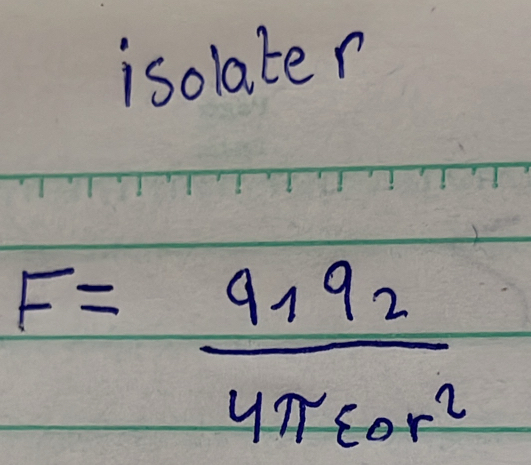 isolate r
F = q₁q₂
4πε₀r²